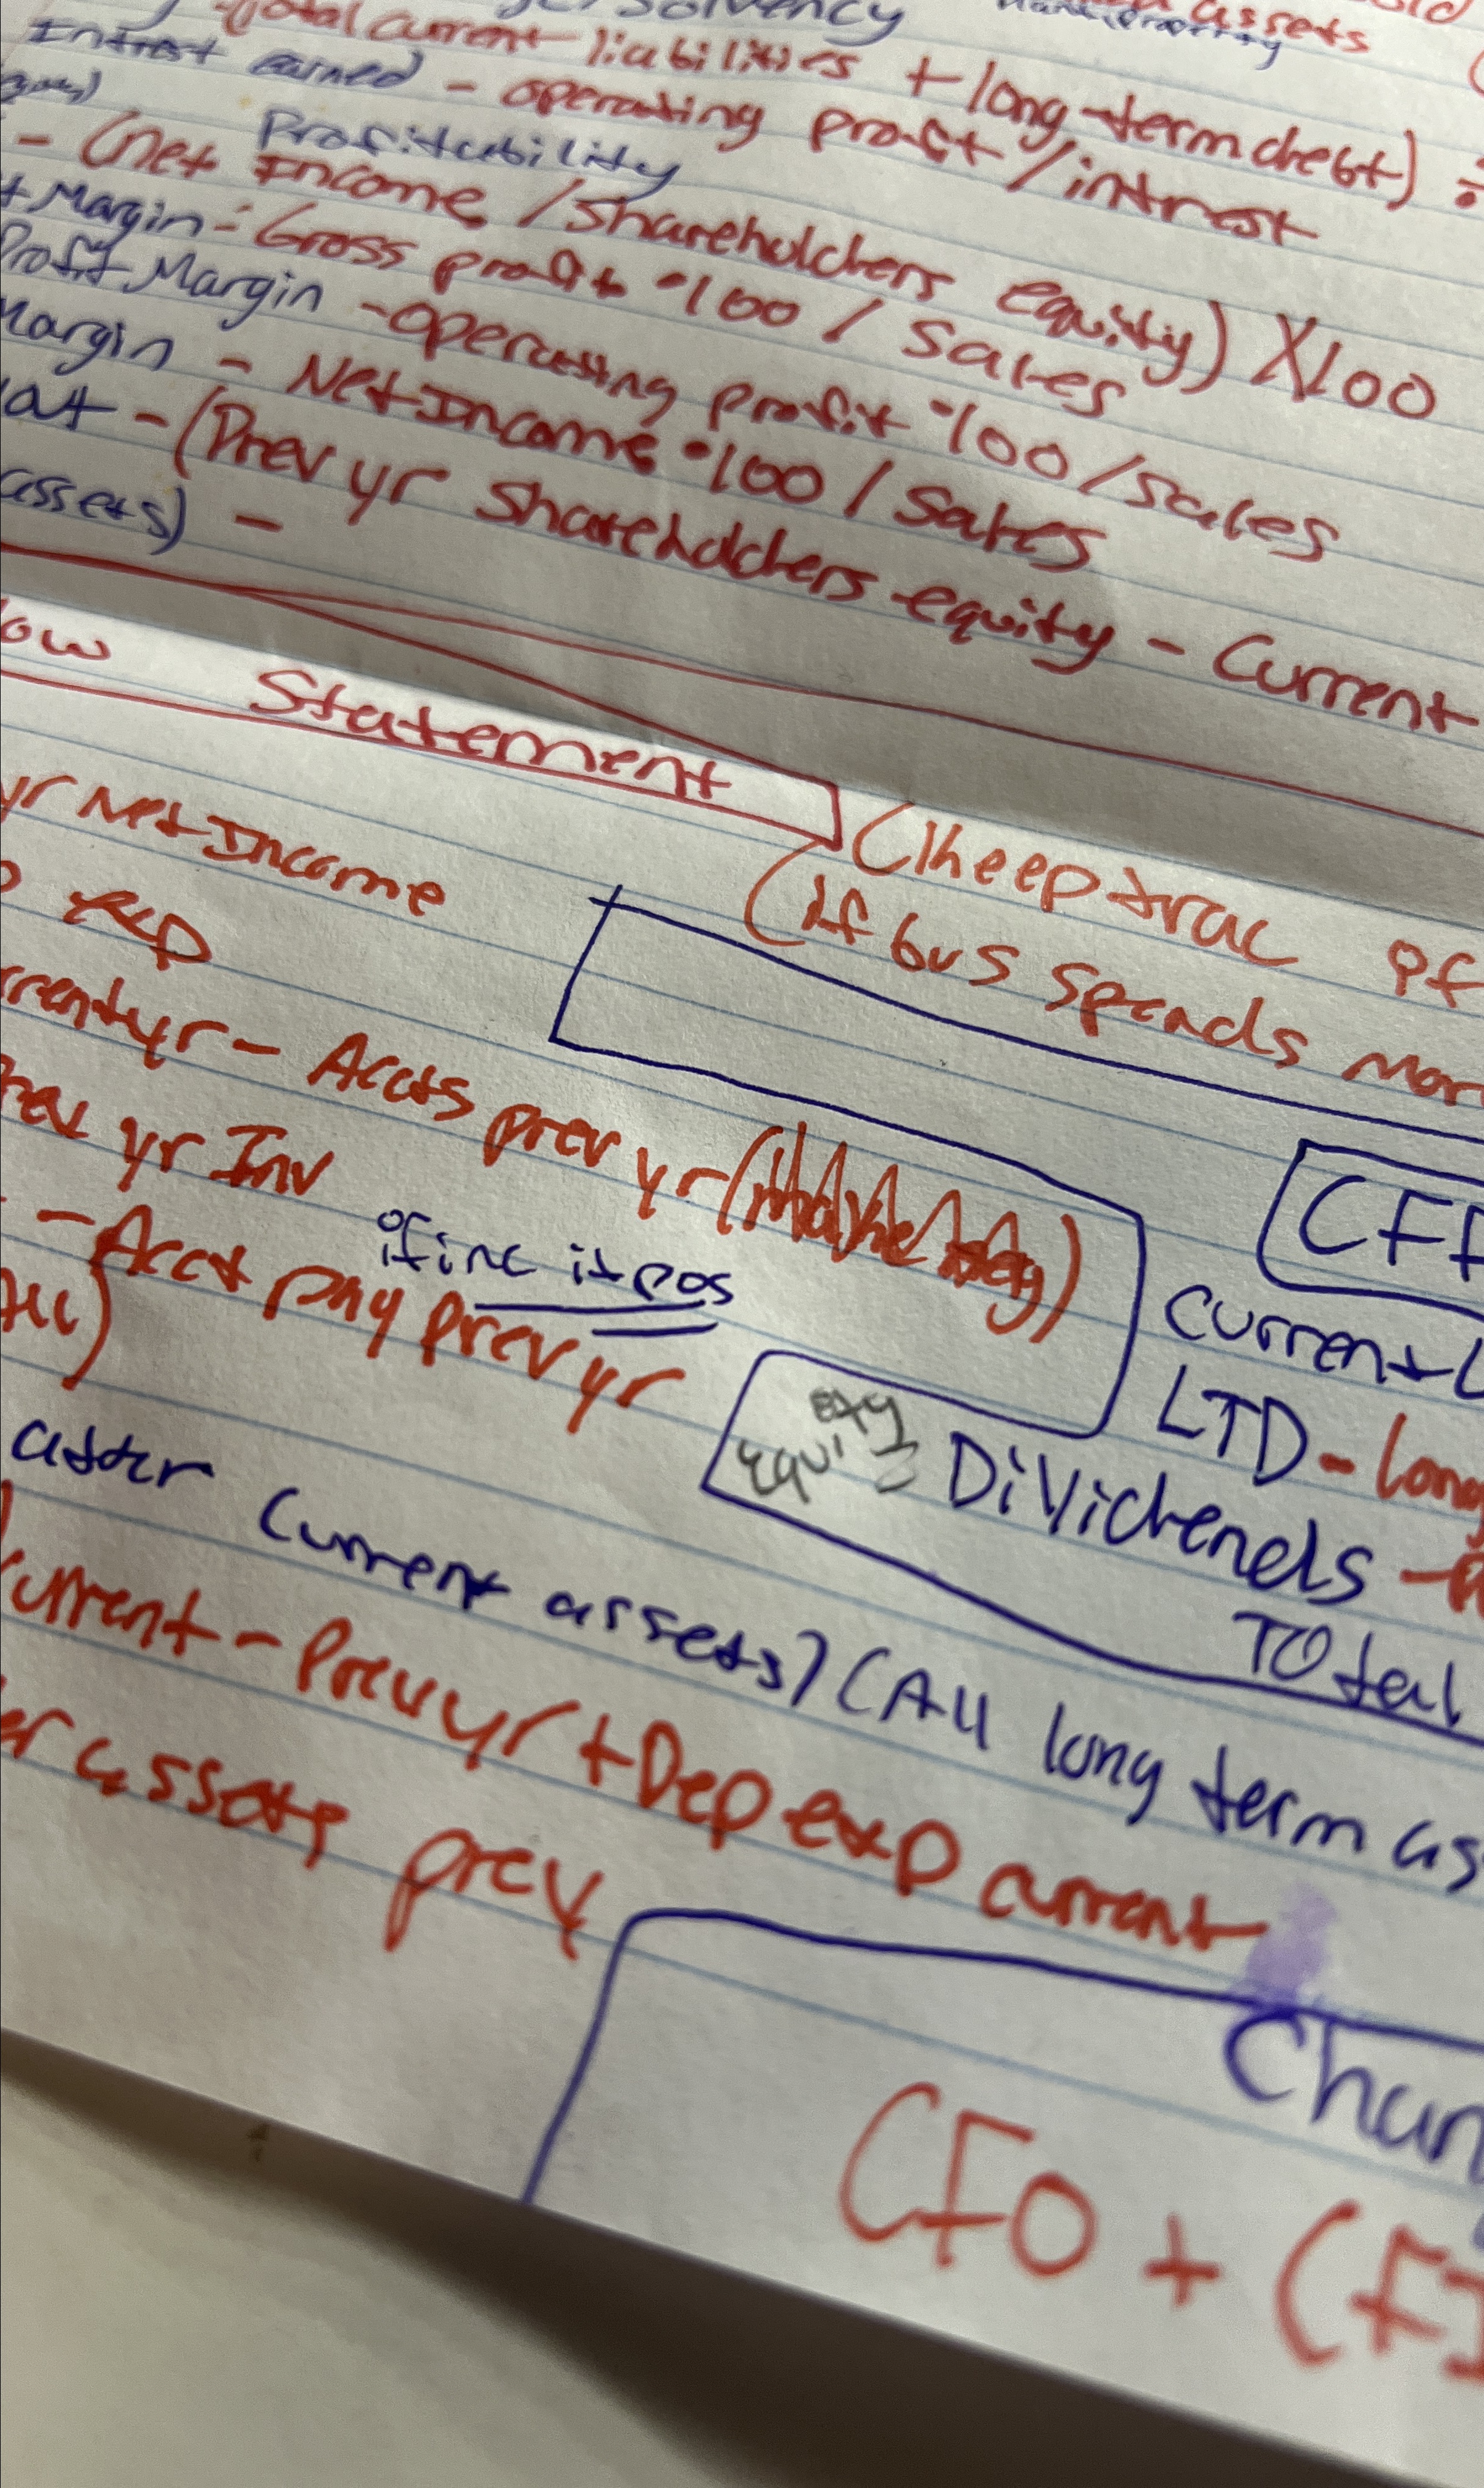 Solvency
assets
Total current liabilities + long-term debt) ÷
Intrest earned - operating profit/intrest
Profitability
- (net Income / Shareholders equity) X100
t Margin - Gross profit • 100 / Sales
Profit Margin - operating profit • 100 / Sales
Margin - Net Income • 100 / Sales
- (Prev yr Shareholders equity - Current
assets) -
ow Statement
(Kheep trac of
(if bus spends mor
yr Net Income
exp
rrent yr - Accts prev yr
CFF
Prev yr Inv
if inc it pos
- Acct pay prev yr
Current L
LTD - long
equity
Dividends -
Total
Current assets) (All long term as
Current - Prev yr + Dep exp current
er assets prev
Chan
CFO + CFI